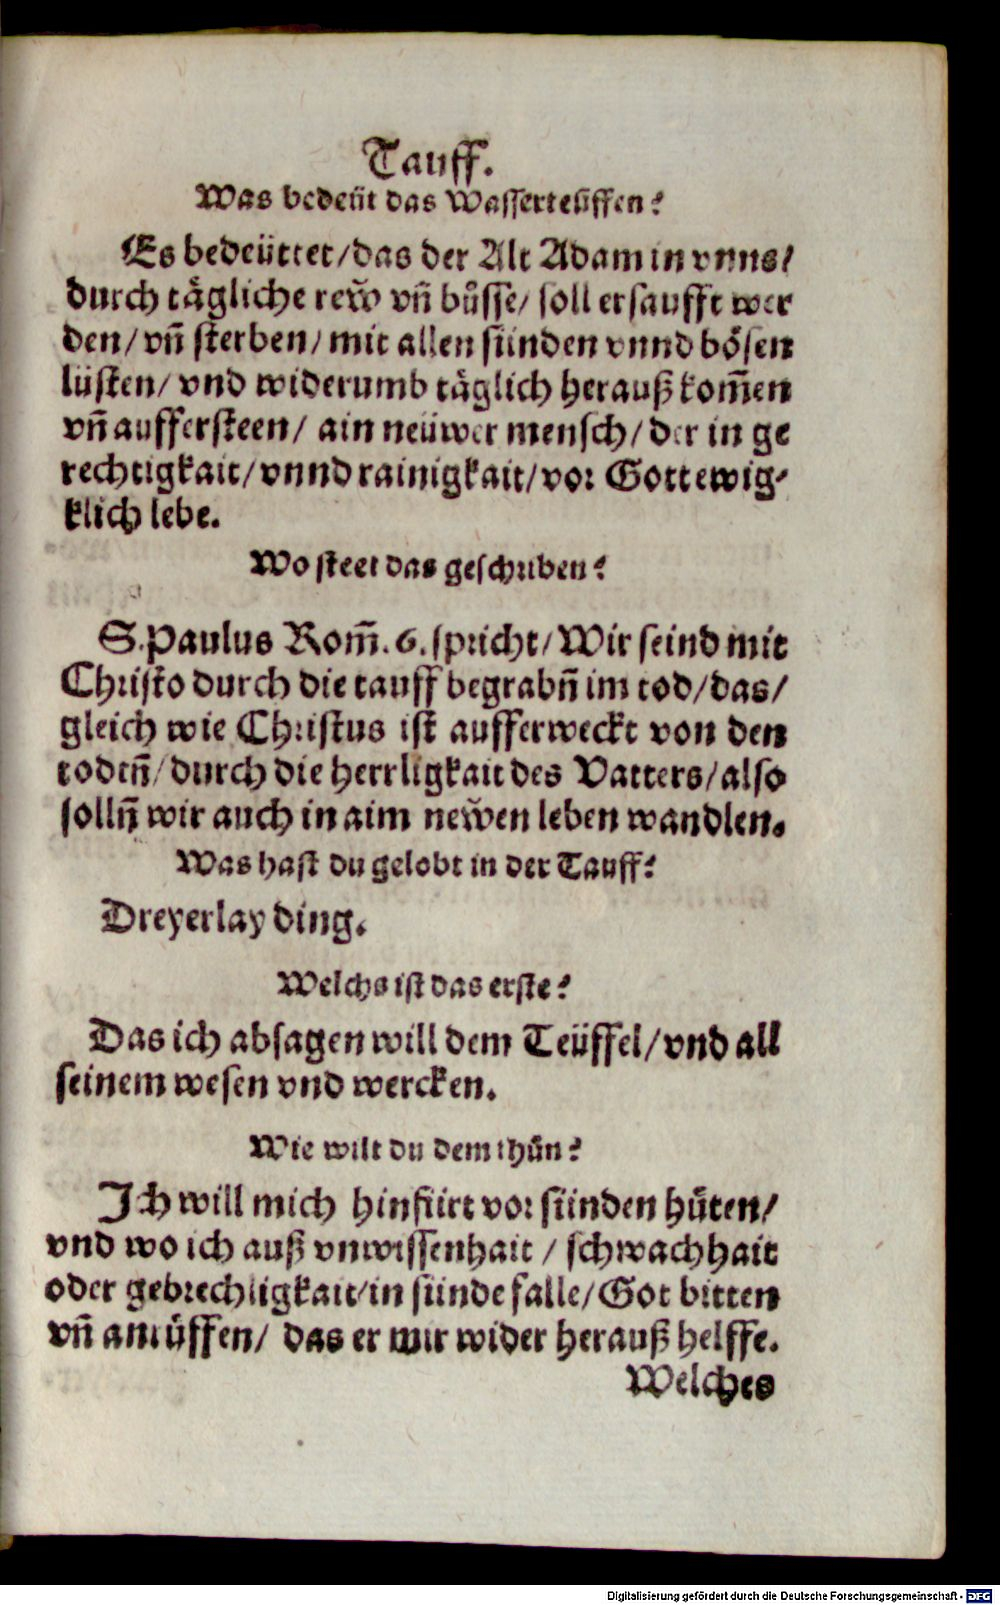 Tauff.
Was bedeüt das Wasserteüffen?
Es bedeüttet/das der Alt Adam in vnns/
durch tägliche rew̌ vn̄ bůsse/ soll ersaufft wer
den/ vn̄ sterben/ mit allen sünden vnnd bösen
lüsten/ vnd widerumb täglich herauß kom̄en
vn̄ auffersteen/ ain neüwer mensch/ der in ge
rechtigkait/ vnnd rainigkait/ vor Gott ewig-
klich lebe.
Wo steet das geschriben?
S. Paulus Rom̄. 6. spricht/ Wir seind mit
Christo durch die tauff begrabn̄ im tod/das/
gleich wie Christus ist aufferweckt von den
todtn̄/ durch die herrligkait des Vatters/ also
solln̄ wir auch in aim new̌en leben wandlen.
Was hast du gelobt in der Tauff?
Dreyerlay ding.
Welchs ist das erste?
Das ich absagen will dem Teüffel/ vnd all
seinem wesen vnd wercken.
Wie wilt du dem thůn?
Ich will mich hinfürt vor sünden hüten/
vnd wo ich auß vnwissenhait / schwachhait
oder gebrechligkait/in sünde falle/ Got bitten
vn̄ anrüffen/ das er mir wider herauß helffe.
Welches
Digitalisierung gefördert durch die Deutsche Forschungsgemeinschaft - DFG